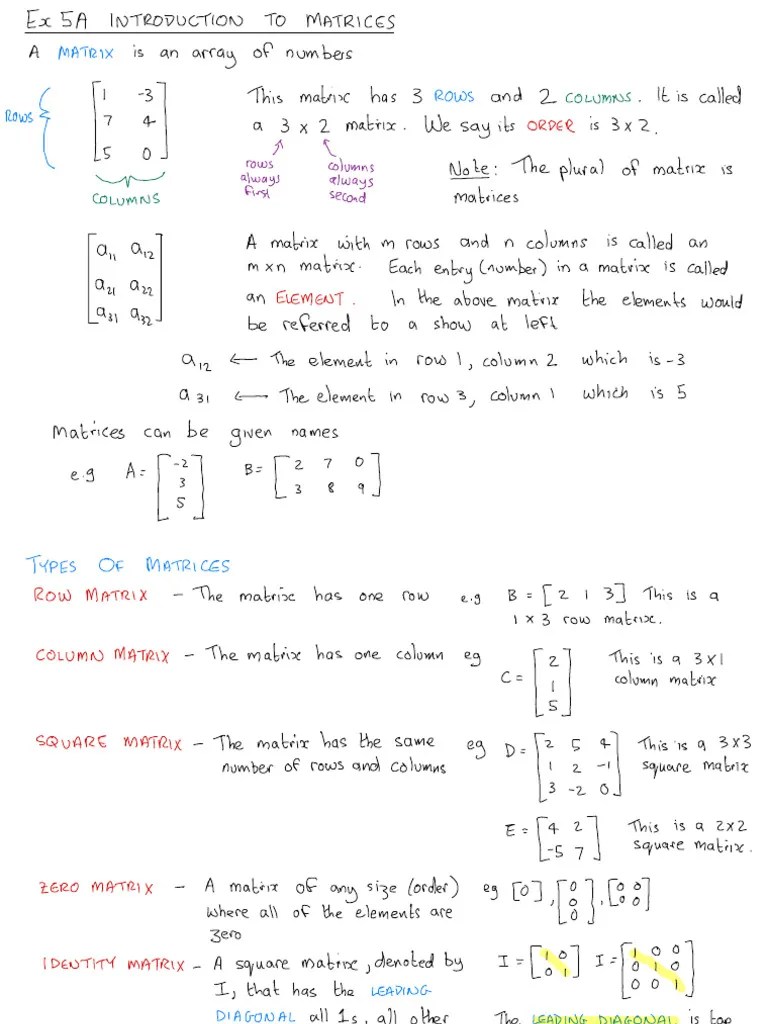 Ex 5A INTRODUCTION TO MATRICES
A MATRIX is an array of numbers
ROWS
1 -3
7 4
5 0
COLUMNS
This matrix has 3 ROWS and 2 COLUMNS. It is called
a 3 x 2 matrix. We say its ORDER is 3x2.
rows always first
columns always second
Note: The plural of matrix is
matrices
a11 a12
a21 a22
a31 a32
A matrix with m rows and n columns is called an
m x n matrix. Each entry (number) in a matrix is called
an ELEMENT. In the above matrix the elements would
be referred to a show at left
a12 ← The element in row 1, column 2 which is -3
a31 ← The element in row 3, column 1 which is 5
Matrices can be given names
e.g A = [-2
3
5] B = [2 7 0
3 8 9]
TYPES OF MATRICES
ROW MATRIX – The matrix has one row e.g B = [2 1 3] This is a
1 x 3 row matrix.
COLUMN MATRIX – The matrix has one column eg
C = [2
1
5]
This is a 3x1
column matrix
SQUARE MATRIX – The matrix has the same
number of rows and columns
eg D = [2 5 4
1 2 -1
3 -2 0]
This is a 3x3
square matrix
E = [4 2
-5 7]
This is a 2x2
square matrix.
ZERO MATRIX – A matrix of any size (order)
where all of the elements are
zero
eg [0], [0
0
0], [0 0
0 0]
IDENTITY MATRIX – A square matrix, denoted by
I, that has the LEADING
DIAGONAL all 1s, all other
I = [1 0
0 1] I = [1 0 0
0 1 0
0 0 1]
The LEADING DIAGONAL is top